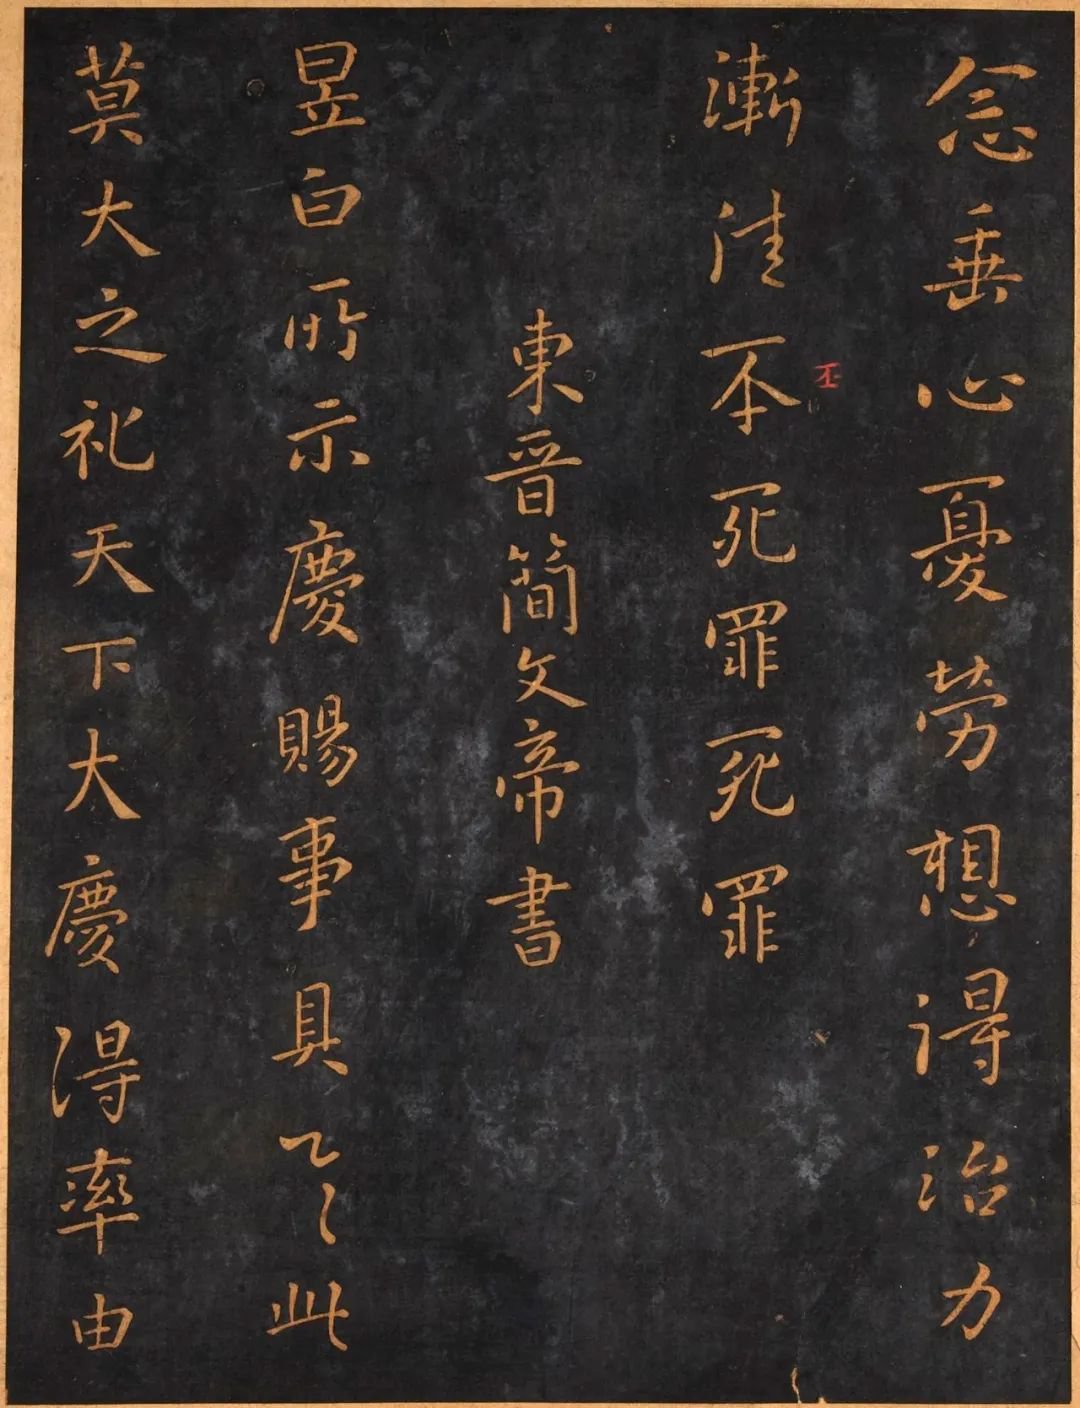 念垂心憂勞想得治力
漸佳不死罪死罪
丕
東晉簡文帝書
昱白所示慶賜事具了〻此
莫大之礼天下大慶得率由